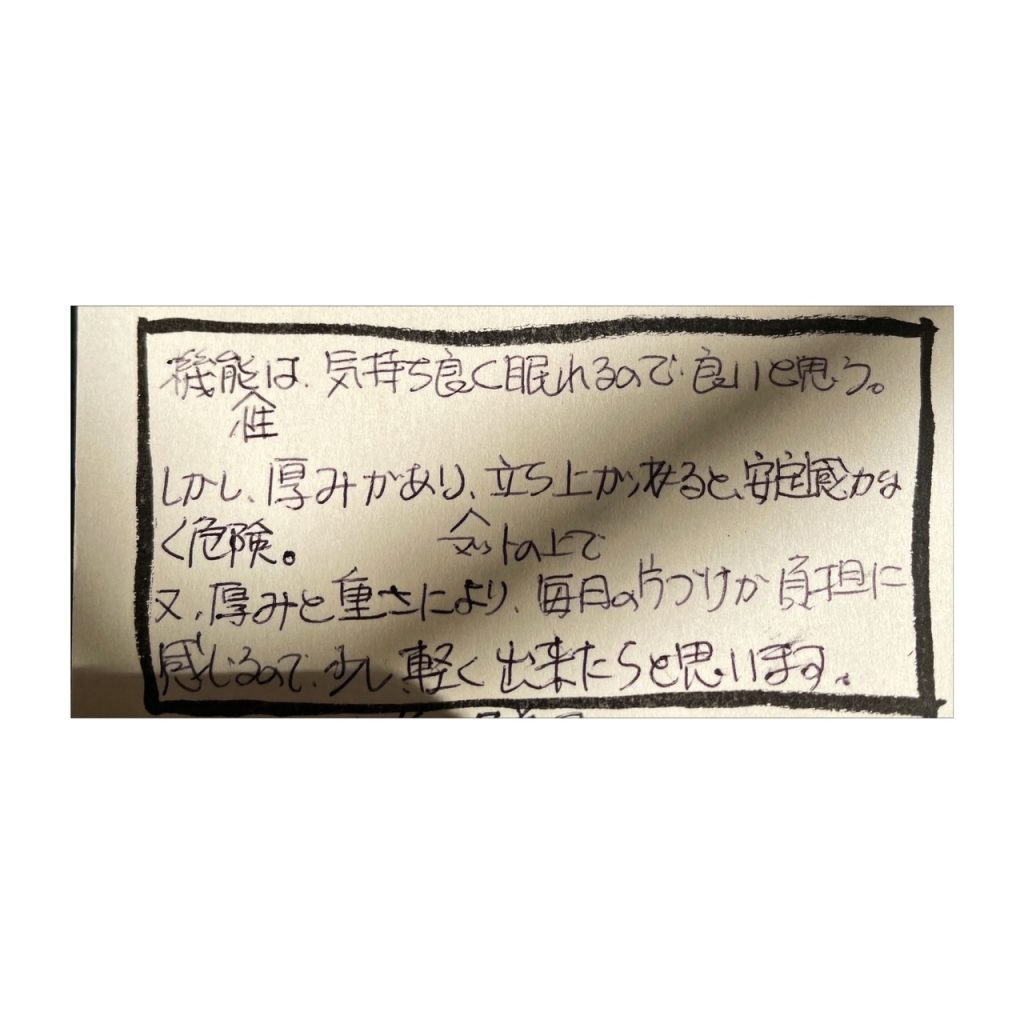 機能性は、気持ち良く眠れるので良いと思う。
しかし、厚みがあり、マットの上で立ち上がったりすると、安定感がな
く危険。
又、厚みと重さにより、毎日の片づけが負担に
感じるので、少し軽く出来たらと思います。